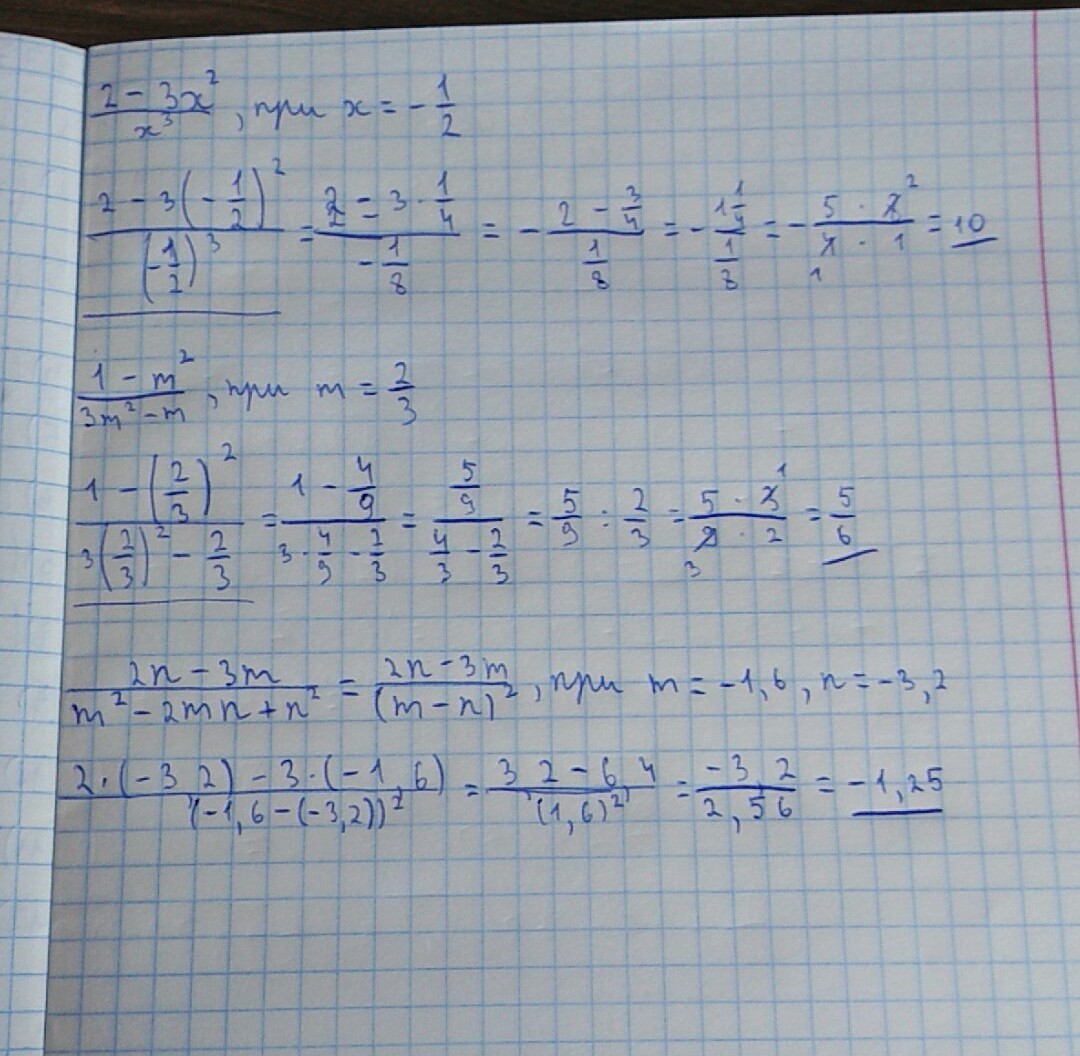 (2 - 3x²)/x³, при x = -1/2
(2 - 3(-1/2)²)/(-1/2)³ = (2 - 3 · 1/4)/(-1/8) = -(2 - 3/4)/(1/8) = -(1 1/4)/(1/8) = -(5 · 8 2)/(4 1 · 1) = 10
(1 - m²)/(3m² - m), при m = 2/3
(1 - (2/3)²)/(3(2/3)² - 2/3) = (1 - 4/9)/(3 · 4/9 - 2/3) = (5/9)/(4/3 - 2/3) = 5/9 : 2/3 = (5 · 3 1)/(9 3 · 2) = 5/6
(2n - 3m)/(m² - 2mn + n²) = (2n - 3m)/(m - n)², при m = -1,6, n = -3,2
(2·(-3,2) - 3·(-1,6))/(-1,6 - (-3,2))² = (3,2 - 6,4)/(1,6)² = (-3,2)/(2,56) = -1,25